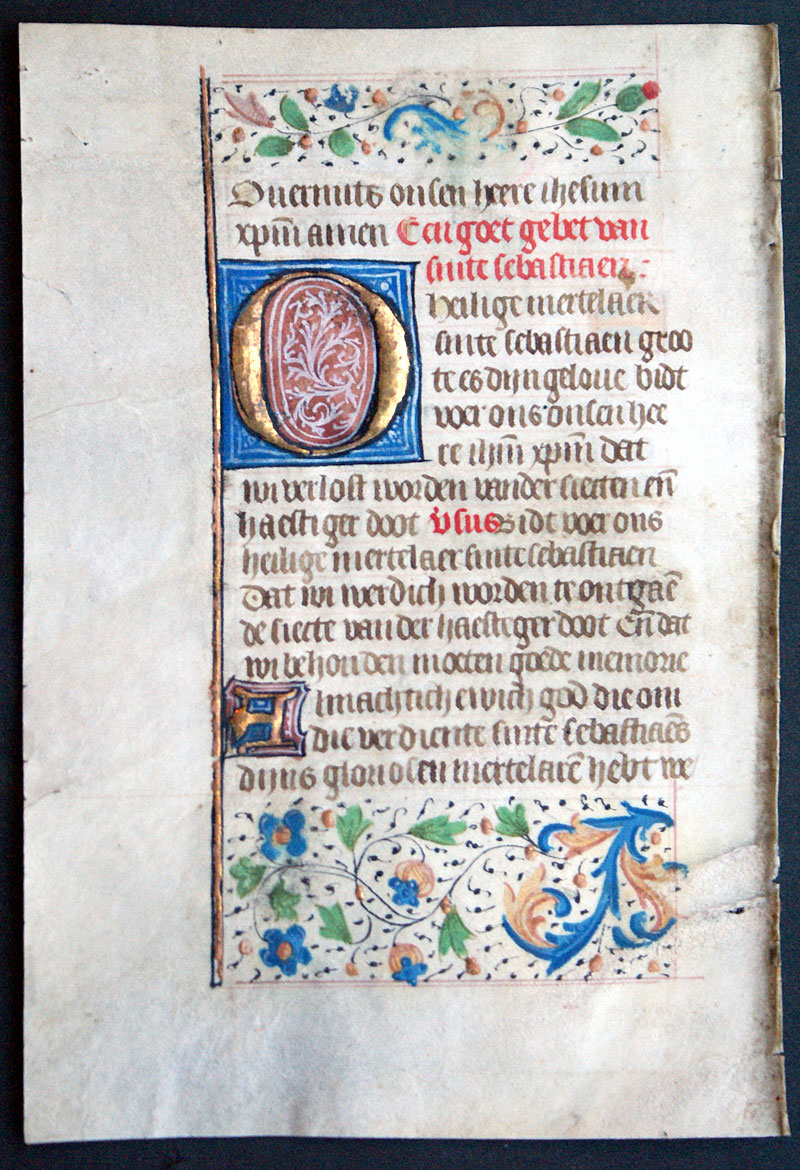 Ouermits onsen heere ihesum
xpm̄ amen Een goet gebet van
sinte sebastiaen:
O heilige mertelaer
sinte sebastiaen groo
te es dijn geloue bidt
voer ons onsen hee
re ihm̄ xpm̄ dat
wi verlost worden vander siecten en̄
haestiger doot v̄sus Bidt voer ons
heilige mertelaer sinte sebastiaen
Dat wi werdich worden te ontgaē
de siecte van der haesteger doot En̄ dat
wi behouden moeten goede memorie
Almachtich ewich god die om
die verdiente sinte sebastiaēs
dijns gloriosen mertelarē hebt we